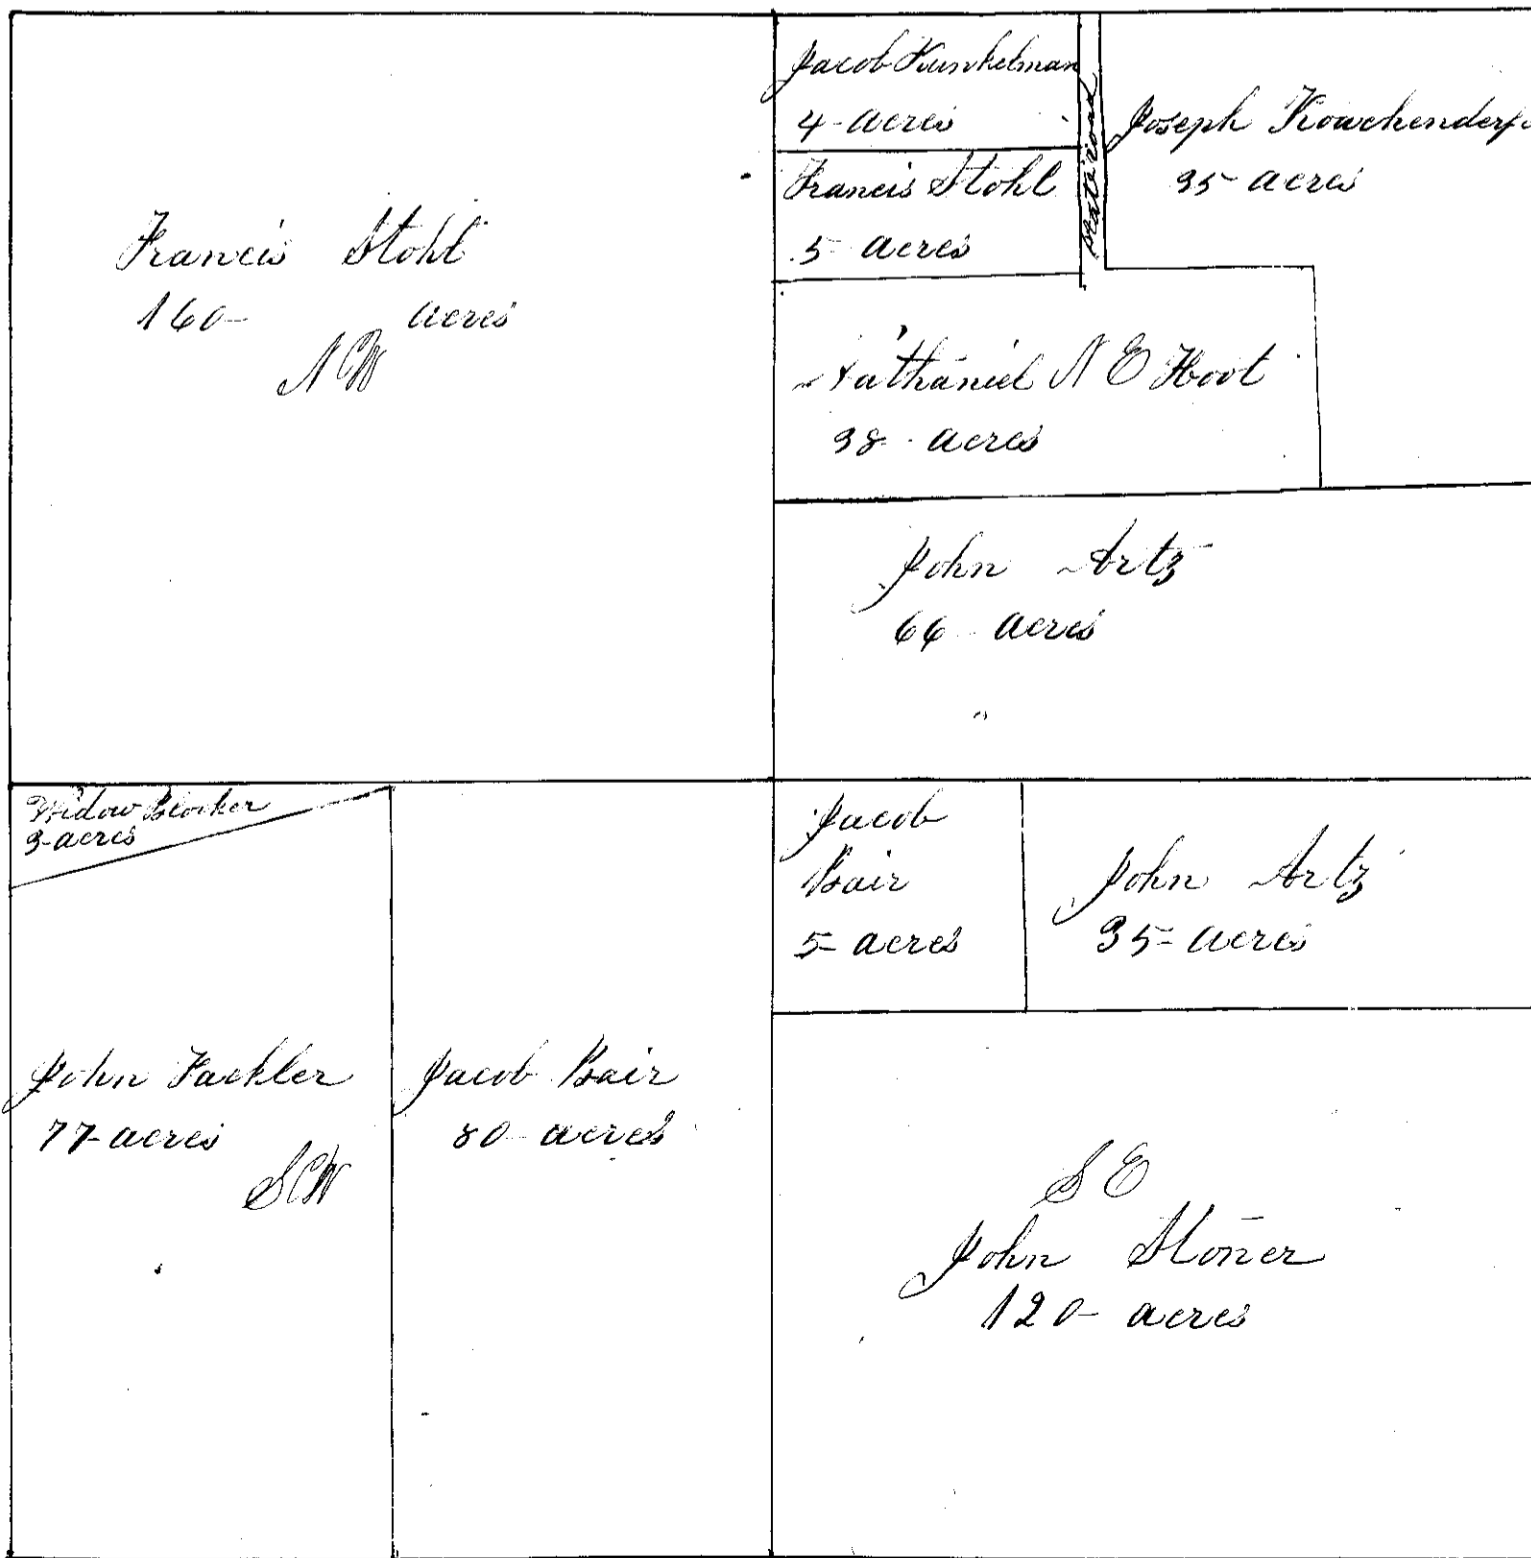 Francis Stohl
160- acres
N W
Jacob Kunkelman
4- acres
Francis Stohl
5- acres
State road
Joseph
35- acres
Nathaniel N E Hoot
38- acres
John Artz
66- acres
Widow Blocker
3- acres
John Fackler
77- acres
S W
Jacob Bair
80- acres
Jacob
Bair
5- acres
John Artz
35- acres
S E
John Stoner
120- acres